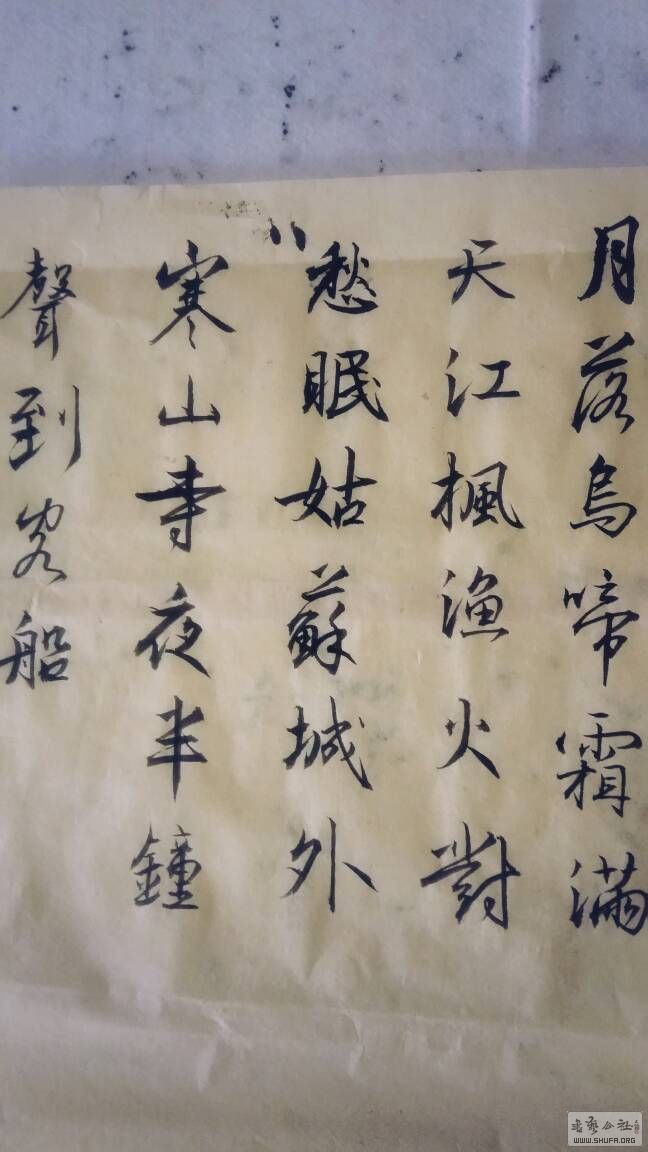 月落烏啼霜滿
天江楓漁火對
愁眠姑蘇城外
寒山寺夜半鐘
聲到客船
WWW.SHUFA.ORG